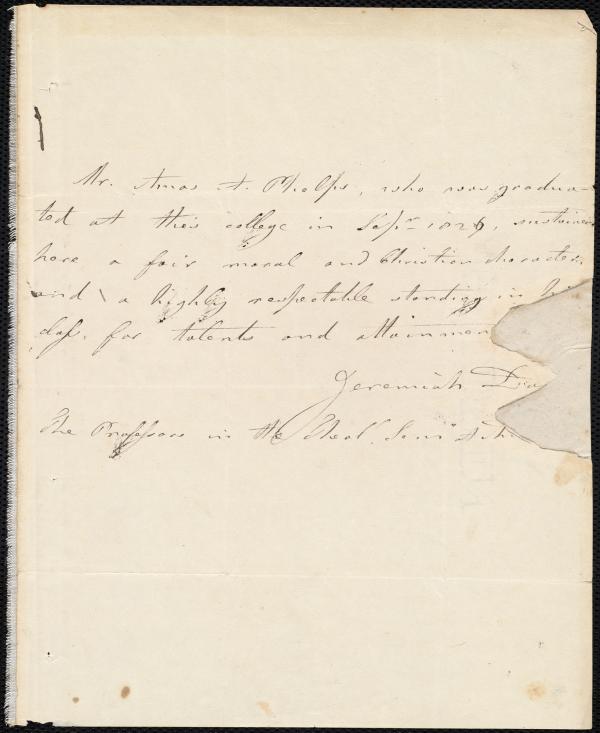 Mr. Amos A. Phelps, who was gradua-
ted at this college in Sepr. 1826, sustained
here a fair moral and Christian character,
and a highly respectable standing in his
class, for talents and attainmen
Jeremiah Da
The Professors in the Theol. Semy